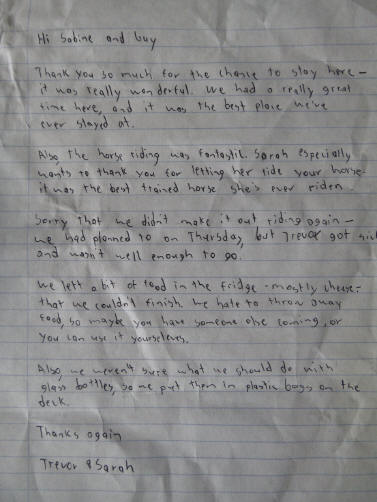 Hi Sabine and Guy
Thank you so much for the chance to stay here –
it was really wonderful. We had a really great
time here, and it was the best place we've
ever stayed at.
Also, the horse riding was fantastic. Sarah especially
wants to thank you for letting her ride your horse-
it was the best trained horse she's ever riden.
Sorry that we didn't make it out riding again –
we had planned to on Thursday, but Trevor got sick
and wasn't well enough to go.
We left a bit of food in the fridge - mostly cheese -
that we couldn't finish. We hate to throw away
food, so maybe you have someone else coming, or
you can use it yourselves.
Also, we weren't sure what we should do with
glass bottles, so we put them in plastic bags on the
deck.
Thanks again
Trevor & Sarah